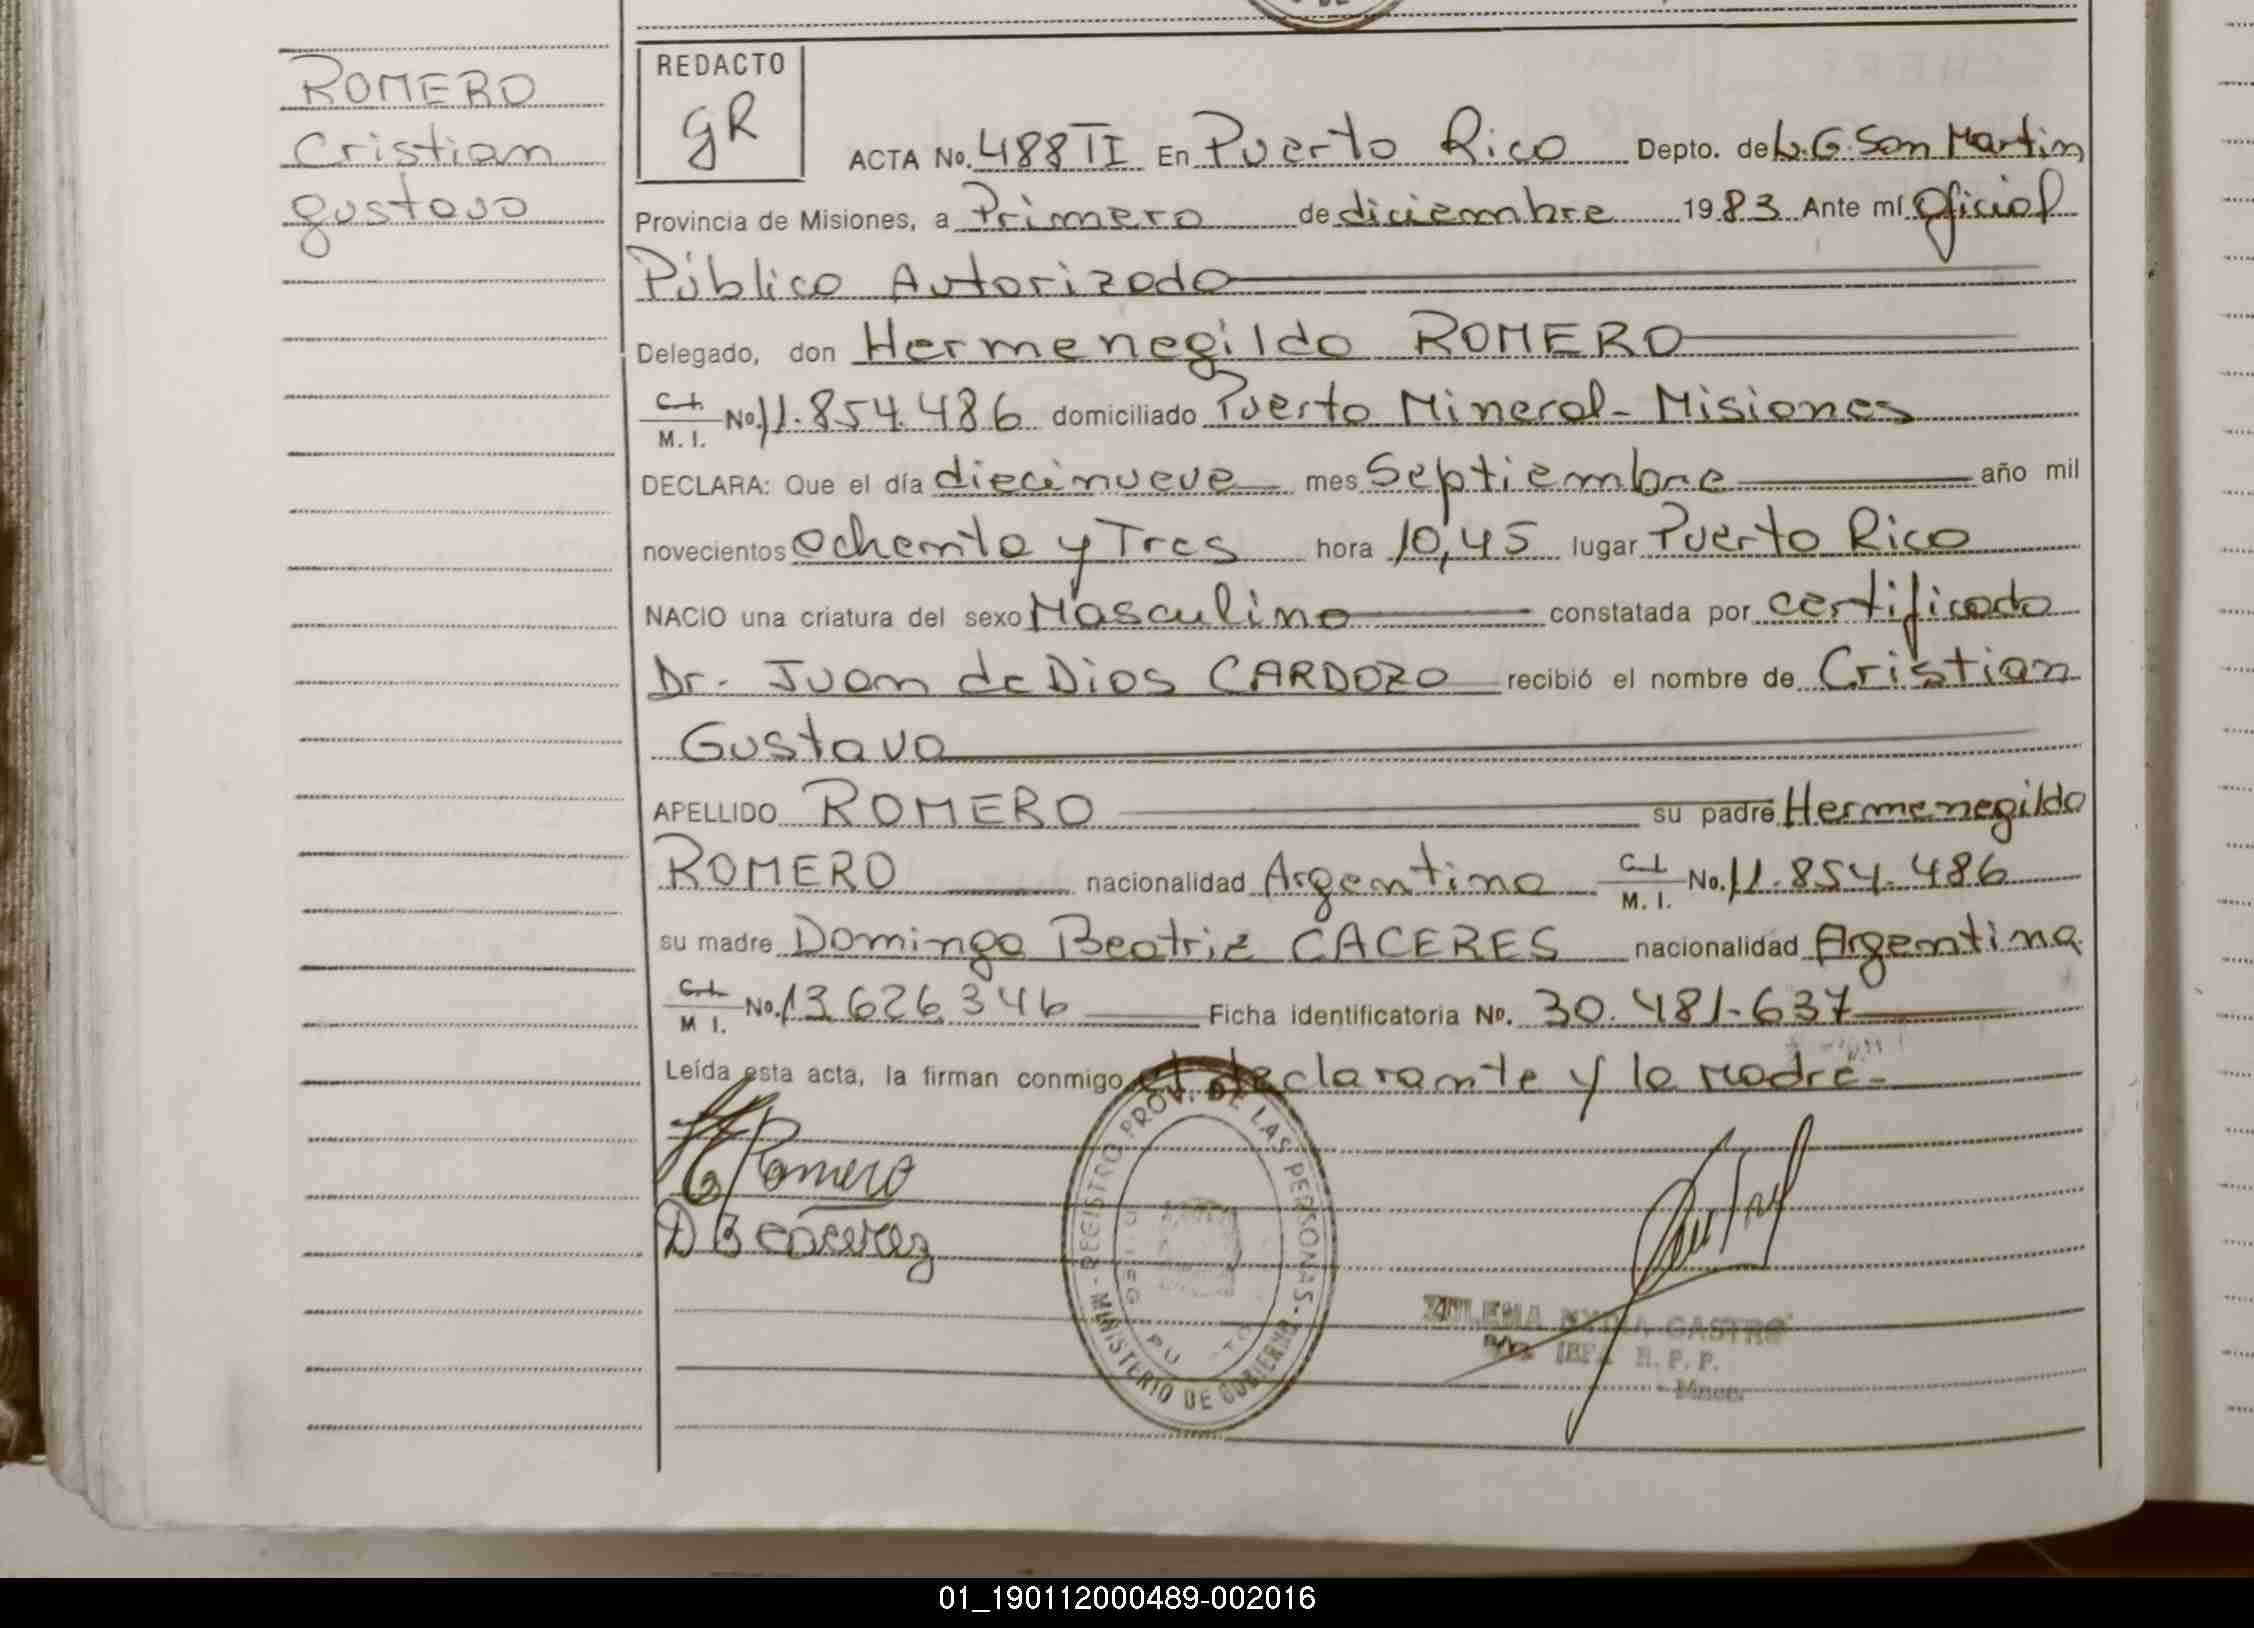 ROMERO
Cristian
gustavo
REDACTO
gR
ACTA No. 488 II En Puerto Rico Depto. de L.G. San Martin
Provincia de Misiones, a Primero de diciembre 1983 Ante mí Oficial
Público Autorizado
Delegado, don Hermenegildo ROMERO
C.I. / M.I. No. 11.854.486 domiciliado Puerto Mineral - Misiones
DECLARA: Que el día diecinueve mes Septiembre año mil
novecientos ochenta y Tres hora 10,45 lugar Puerto Rico
NACIO una criatura del sexo Masculino constatada por certificado
Dr. Juan de Dios CARDOZO recibió el nombre de Cristian
Gustavo
APELLIDO ROMERO su padre Hermenegildo
ROMERO nacionalidad Argentina C.I. / M.I. No. 11.854.486
su madre Dominga Beatriz CACERES nacionalidad Argentina
C.I. / M I. No. 13.626.346 Ficha identificatoria No. 30.481.637
Leída esta acta, la firman conmigo el declarante y la Madre.-
Romero
D B cacerez
REGISTRO PROV. DE LAS PERSONAS - MINISTERIO DE GOBIERNO -
ZULEMA CASTRO
R. P. P.
01_190112000489-002016